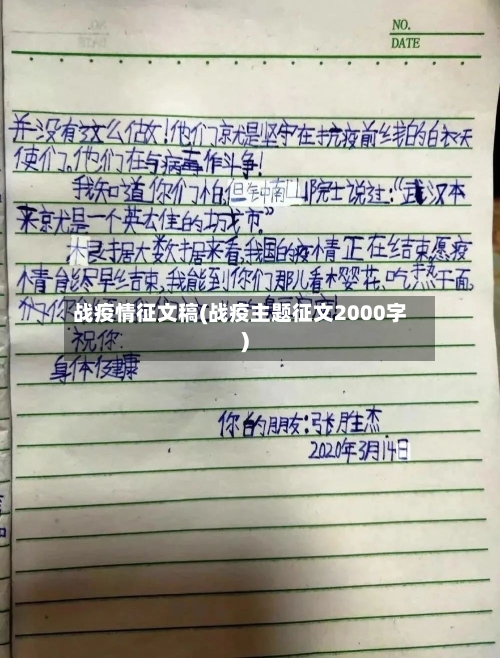 NO.
DATE
并没有这么做!他们就是坚守在抗疫前线的白衣天
使们。他们在与病毒作斗争!
我知道你们怕,但钟南山院士说过:“武汉本
来就是一个英雄的城市。”
根据大数据来看,我国的疫情正在结束,愿疫
情能尽早结束,我能到你们那儿看樱花、吃热干面,
战疫情征文稿(战疫主题征文2000字
)
祝你:
身体健康
你的朋友:张胜杰
2020年3月14日